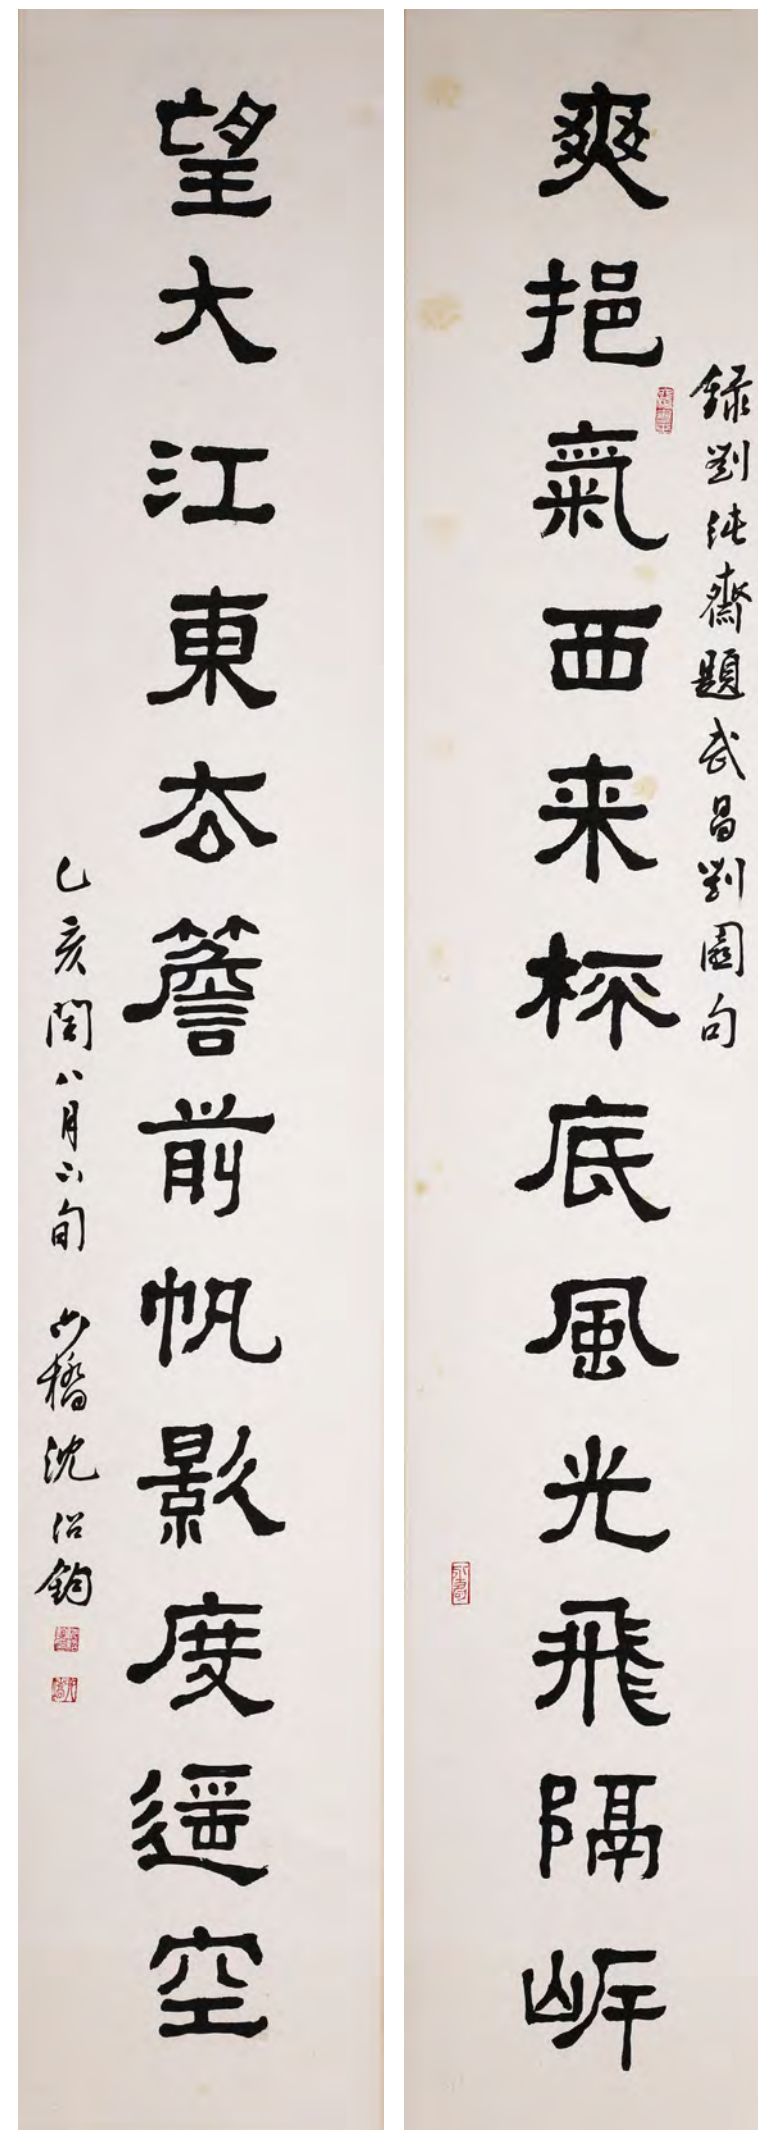 爽挹氣西来杯底風光飛隔岸
錄劉純齋題武昌劉園句
望大江東去簷前帆影度遙空
乙亥閏八月下旬 六橋沈鈞